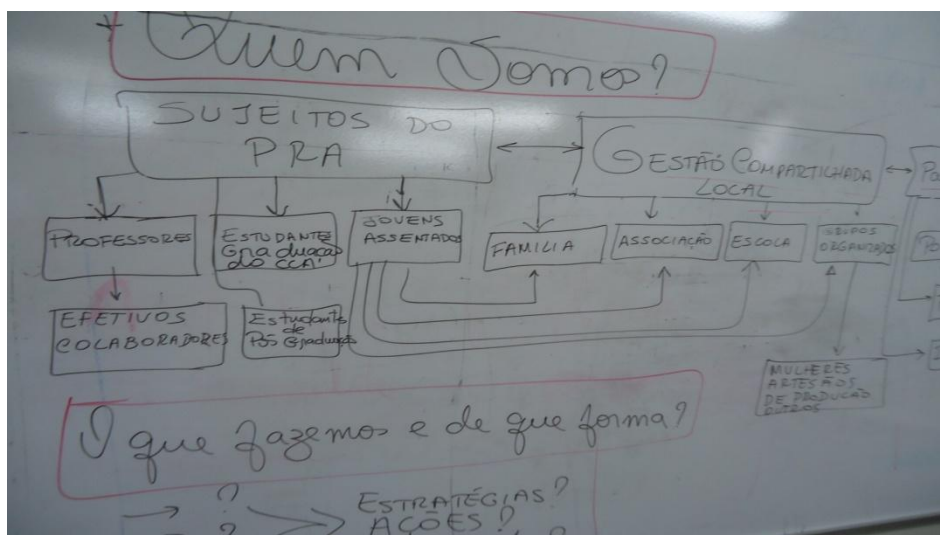 Quem Somos?
SUJEITOS DO
PRA
GESTÃO COMPARTILHADA
LOCAL
PROFESSORES
ESTUDANTES
Graduação
do CCA
JOVENS
ASSENTADOS
FAMILIA
ASSOCIAÇÃO
ESCOLA
GRUPOS
ORGANIZADOS
EFETIVOS
COLABORADORES
Estudante
de
Pós Graduação
MULHERES
ARTESÃOS
DE PRODUÇÃO
OUTROS
O que fazemos e de que forma?
?
ESTRATÉGIAS?
?
AÇÕES?